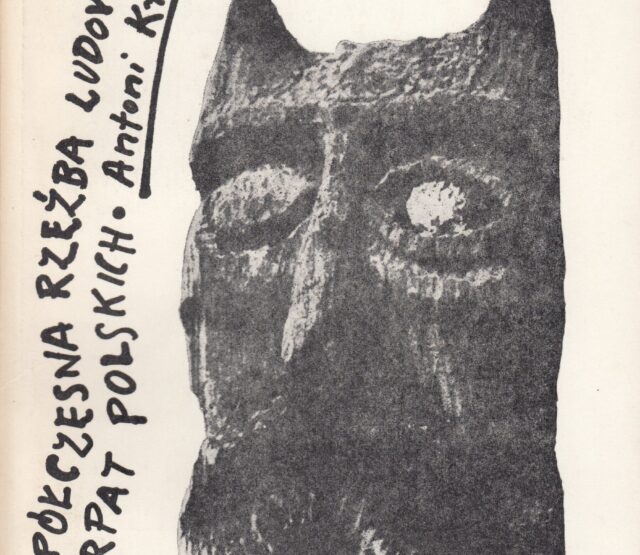 PÓŁCZESNA RZEŹBA LUDOW
RPAT POLSKICH • Antoni K